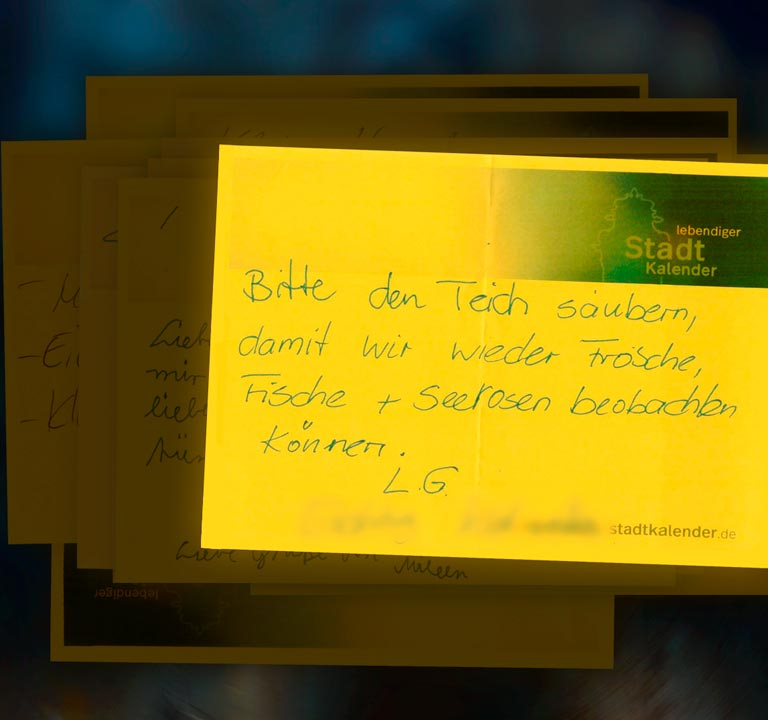 lebendiger
Stadt
Kalender
Bitte den Teich säubern,
damit wir wieder Frösche,
Fische + Seerosen beobachten
können.
L.G.
stadtkalender.de
- Ei
- Kl
Lieb
mir
lieb
Liebe Grüße von
lebendiger